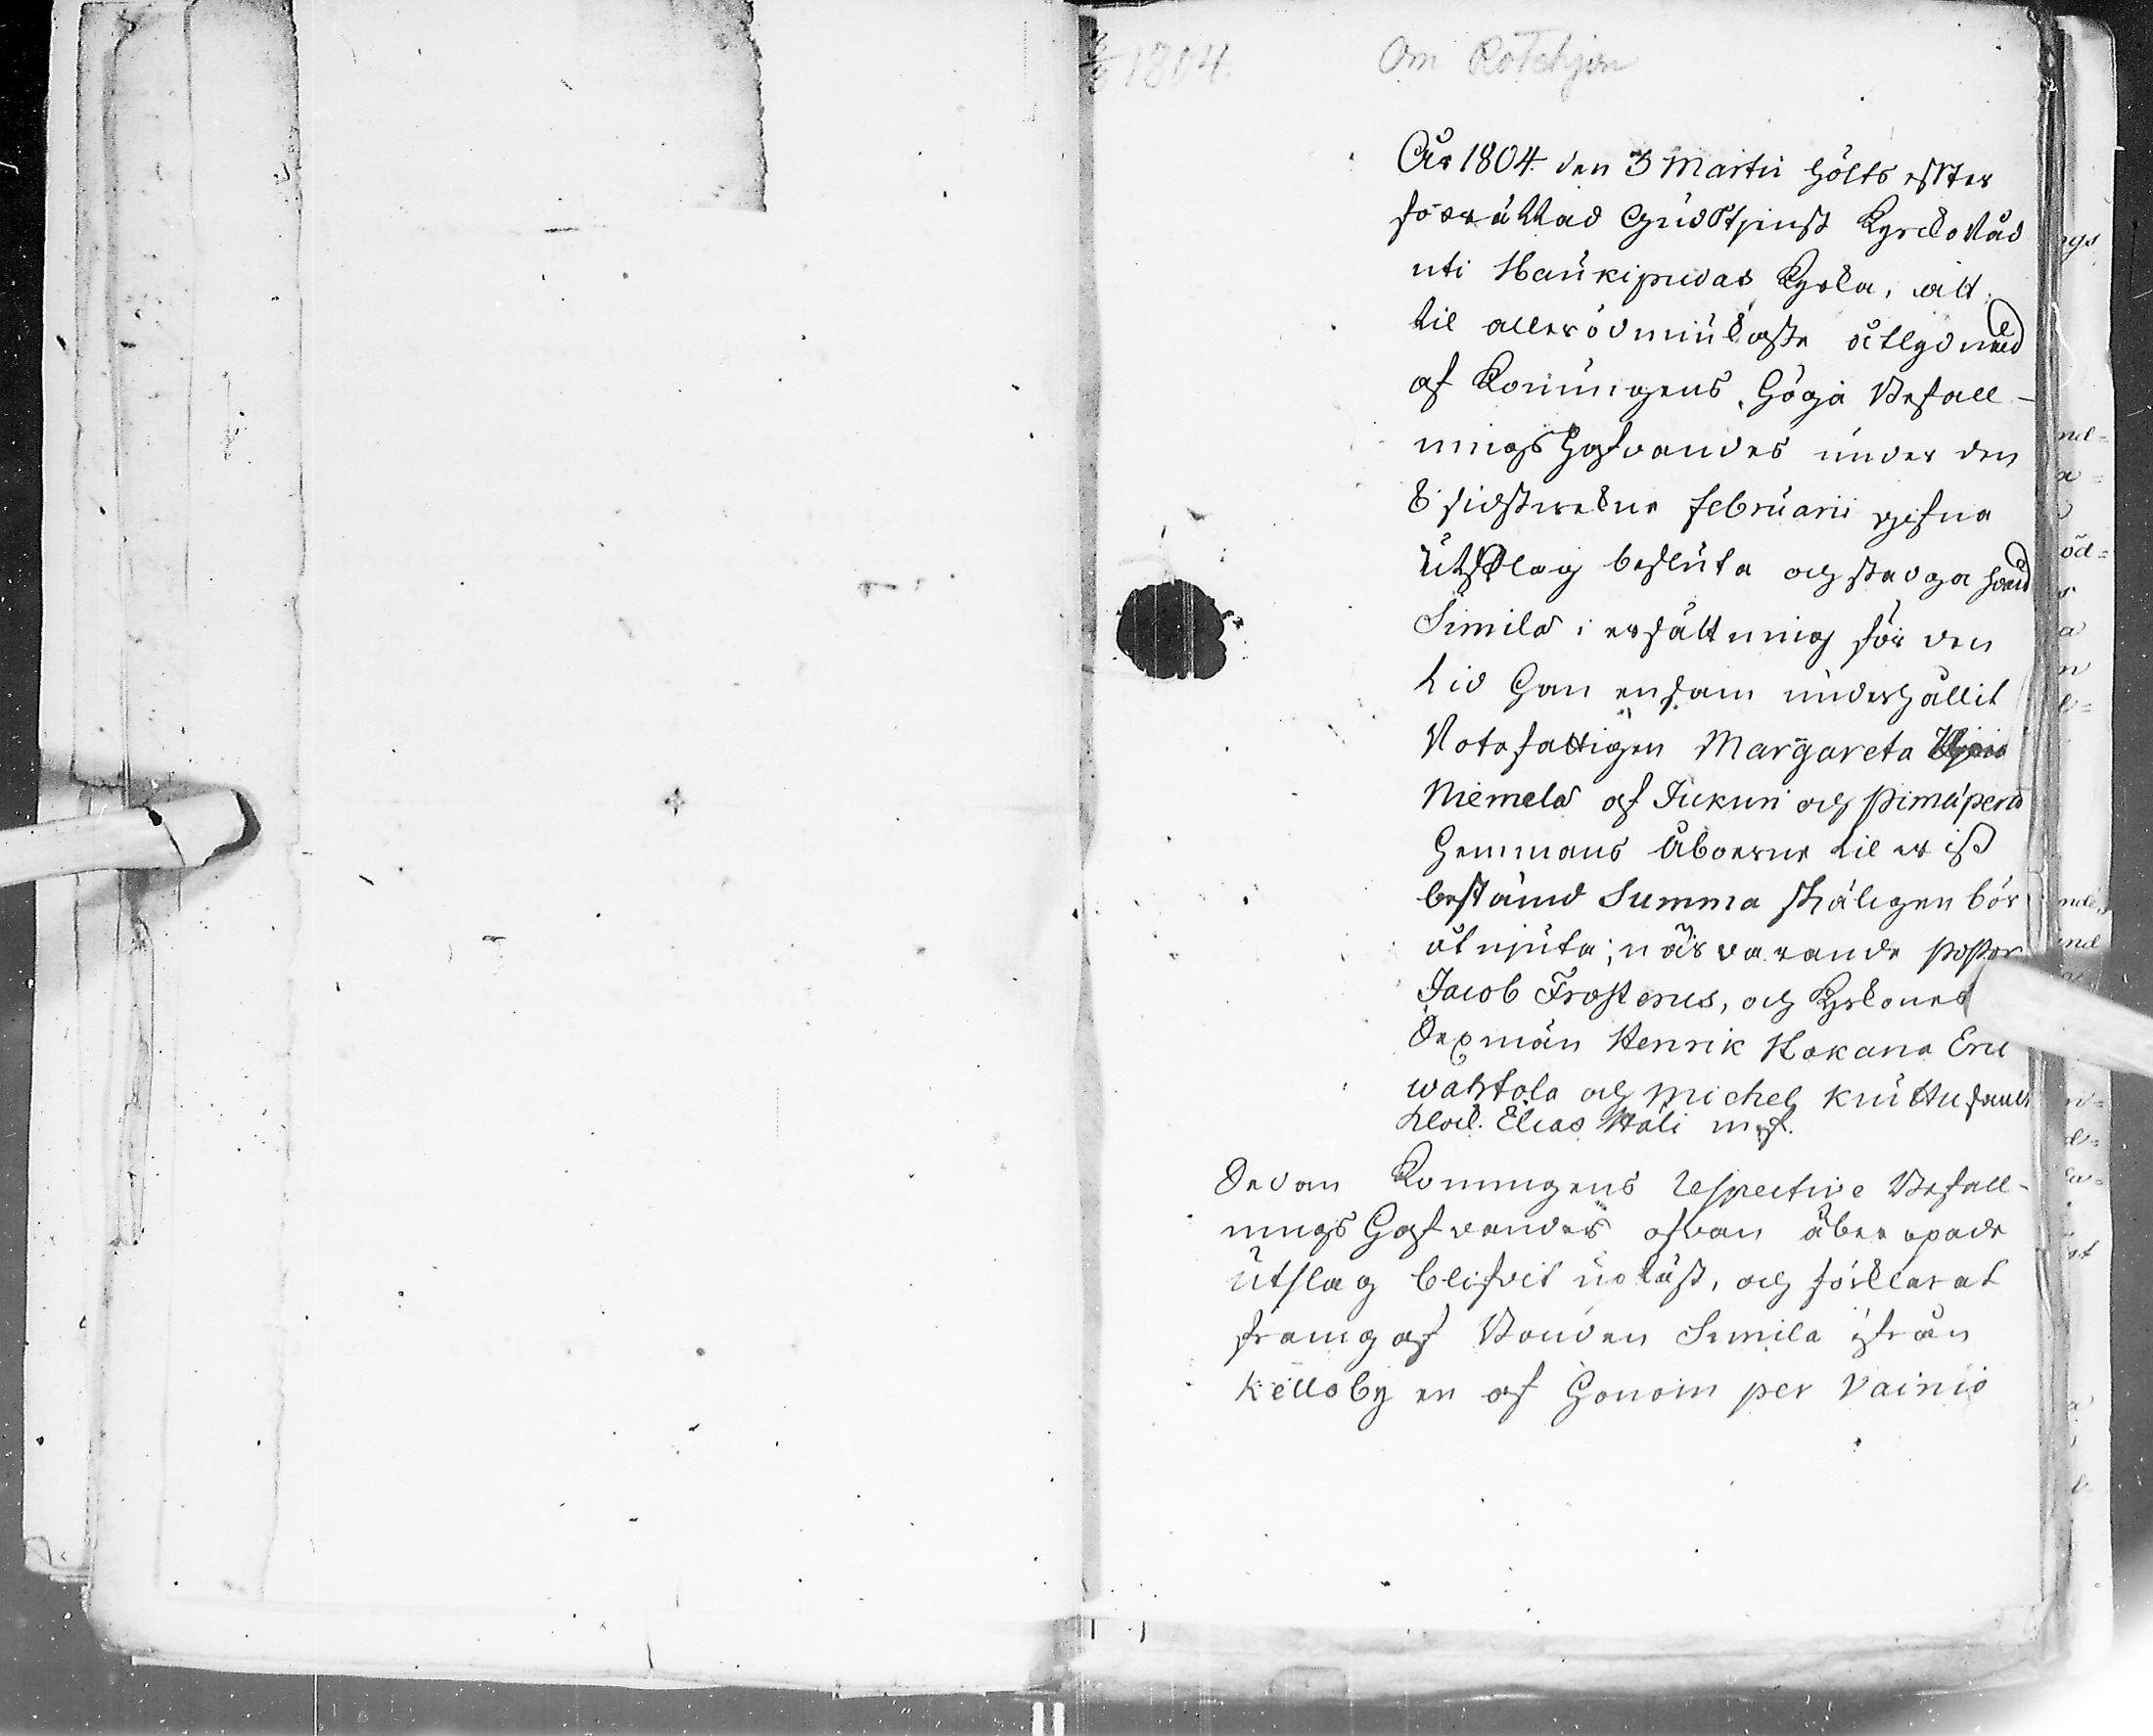 1804.
Om Rotehjon
År 1804 den 3 Martii hölts effter
förrättad Gudstjenst Kyrckoråd
uti Haukipudas Kyrka, att
til allerödmiukaste åtlydnad
af Konungens Höga Befall-
nings Hafvandes under den
8 sidstvekne Februarii gifna
Utslag besluta och stadga hvad
Simila i ersättning för den
tid Han ensam underhållit
Rotefattigen Margareta
Niemelä af Jukuri och Pimiäperä
Hemmans Åboerne til viss
bestämd Summa skäligen bör
åtniuta; närvarande Pastor
Jacob Frosterus, och Kyrkones
Sexmän Henrik Kokana Eric
Wahtola och Michel Knuttu samt
klock. Elias Hali m. f.
Sedan Konungens respective Befall-
nings Hafvandes ofvan åberopade
Utslag blifvit upläst, och förklarat
framgaf Bonden Simila ifrån
Kelloby en af Honom per Vainio